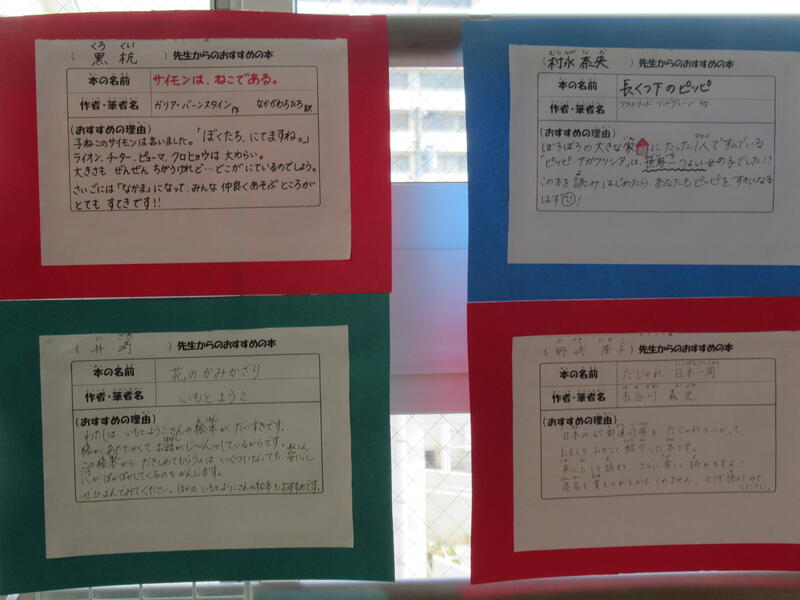 くろ くい
( 黒 杭 ) 先生からのおすすめの本
本の名前 サイモンは、ねこである。
作者・筆者名 ガリア・バーンスタイン作 なかがわちひろ訳
(おすすめの理由)
子ねこのサイモンは言いました。「ぼくたち、にてますね。」
ライオン、チーター、ピューマ、クロヒョウは 大わらい。
大きさも ぜんぜん ちがうけれど…どこがにているのでしょう。
さいごには「なかま」になって、みんな 仲良くあそぶところが
とても すてきです!!
むらなが な お
( 村永 奈央 ) 先生からのおすすめの本
本の名前 長くつ下のピッピ
作者・筆者名 アストリッド リンドグレーン 作
(おすすめの理由)
ぼろぼろの大きな家に、たった1人ですんでいる
「ピッピ・ナガクツシタ」は、世界一つよい女の子でした!!
この本を読みはじめたら、あなたもピッピを すきになる
はず!
い ざき
( 井 﨑 ) 先生からのおすすめの本
本の名前 花のかみかざり
作者・筆者名 いもとようこ
(おすすめの理由)
わたしは いもとようこさんの絵本が だいすきです。
絵が、あたたかくて お話が じ〜んとしているからです。
この絵本から だきしめてもらうのは いくつになっても 安心し
心が ぽかぽかしてくるのを かんじます。
ぜひ よんでみてください。ほかの いもとようこさんの絵本も おすすめです。
( 野﨑 隆子 ) 先生からのおすすめの本
本の名前 だじゃれ 日本一周
作者・筆者名 長谷川 義史
(おすすめの理由)
日本の47都道府県を だじゃれをつかって
おもしろ おかしく 紹介した 本です。
声に出して読むと、さらに楽しく 読めますよ!
県名も 覚えられるかもしれません。どうぞ 読んでみて
ください。